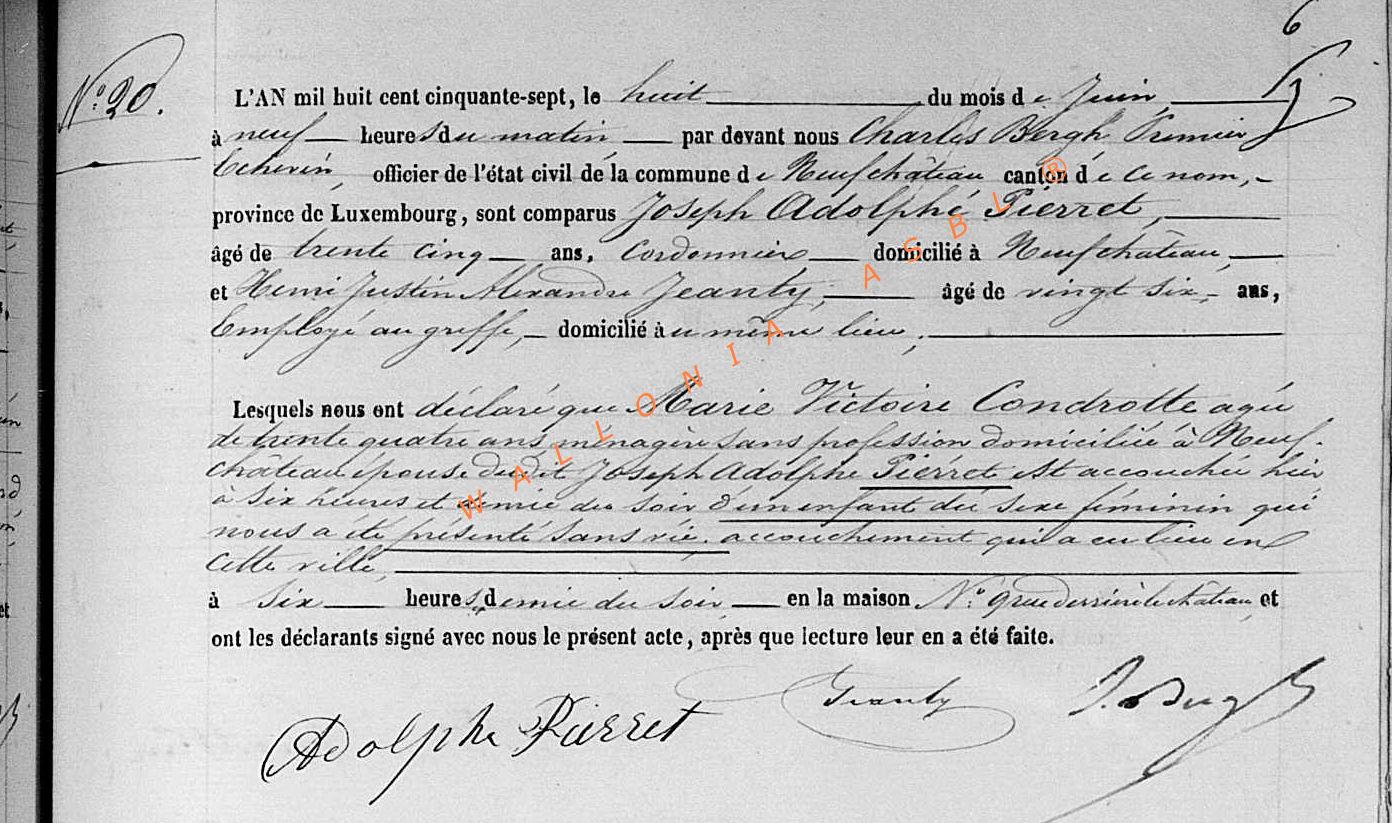 6
N° 20.
L'AN mil huit cent cinquante-sept, le huit du mois de Juin,
à neuf heures du matin par devant nous Charles Bergh Premier
Echevin, officier de l'état civil de la commune de Neufchâteau canton de ce nom,
province de Luxembourg, sont comparus Joseph Adolphe Pierret,
âgé de trente cinq ans, Cordonnier domicilié à Neufchâteau,
et Henri Justin Alexandre Jeanty, âgé de vingt six, ans,
Employé au greffe, domicilié à u même lieu,
Lesquels nous ont déclaré que Marie Victoire Condrotte agée
de trente quatre ans ménagère sans profession domiciliée à Neuf-
château épouse dudit Joseph Adolphe Pierret est accouchée hier
à six heures et demie du soir d'un enfant du sexe féminin qui
nous a été présenté sans vie, accouchement qui a eu lieu en
cette ville,
à six heures, demie du soir, en la maison N° 9 rue derrière le château, et
ont les déclarants signé avec nous le présent acte, après que lecture leur en a été faite.
Adolphe Pierret Jeanty
WALLONIA ASBL ®